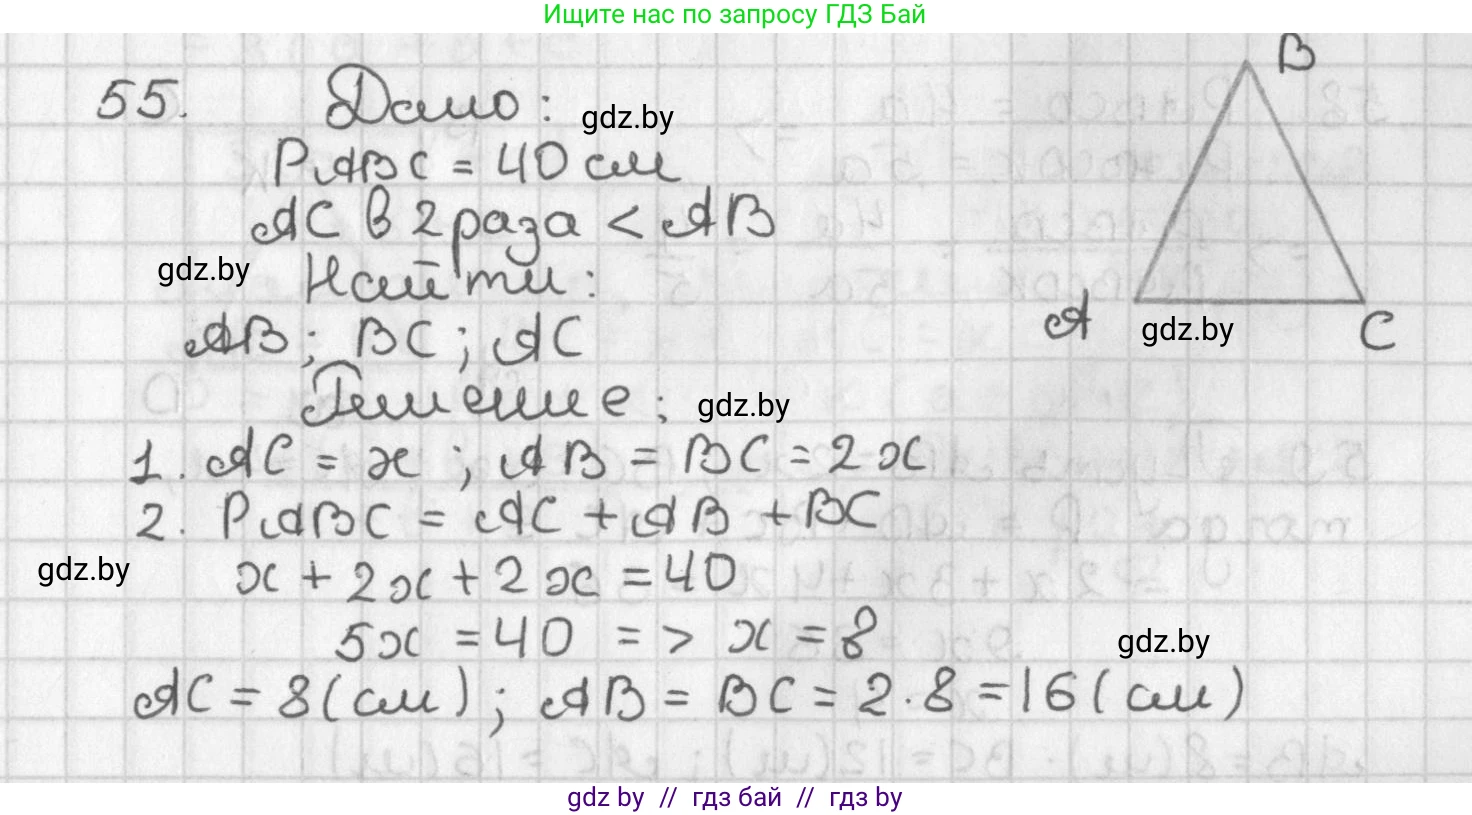 Ищите нас по запросу ГДЗ Бай
B
55. Дано:
gdz.by
PABC = 40 см
AC в 2 раза < AB
gdz.by
Найти:
AB; BC; AC
A
gdz.by
C
Решение:
gdz.by
1. AC = x ; AB = BC = 2x
2. PABC = AC + AB + BC
gdz.by
x + 2x + 2x = 40
5x = 40 => x = 8
gdz.by
AC = 8 (см) ; AB = BC = 2·8 = 16 (см)
gdz by // гдз бай // гдз by